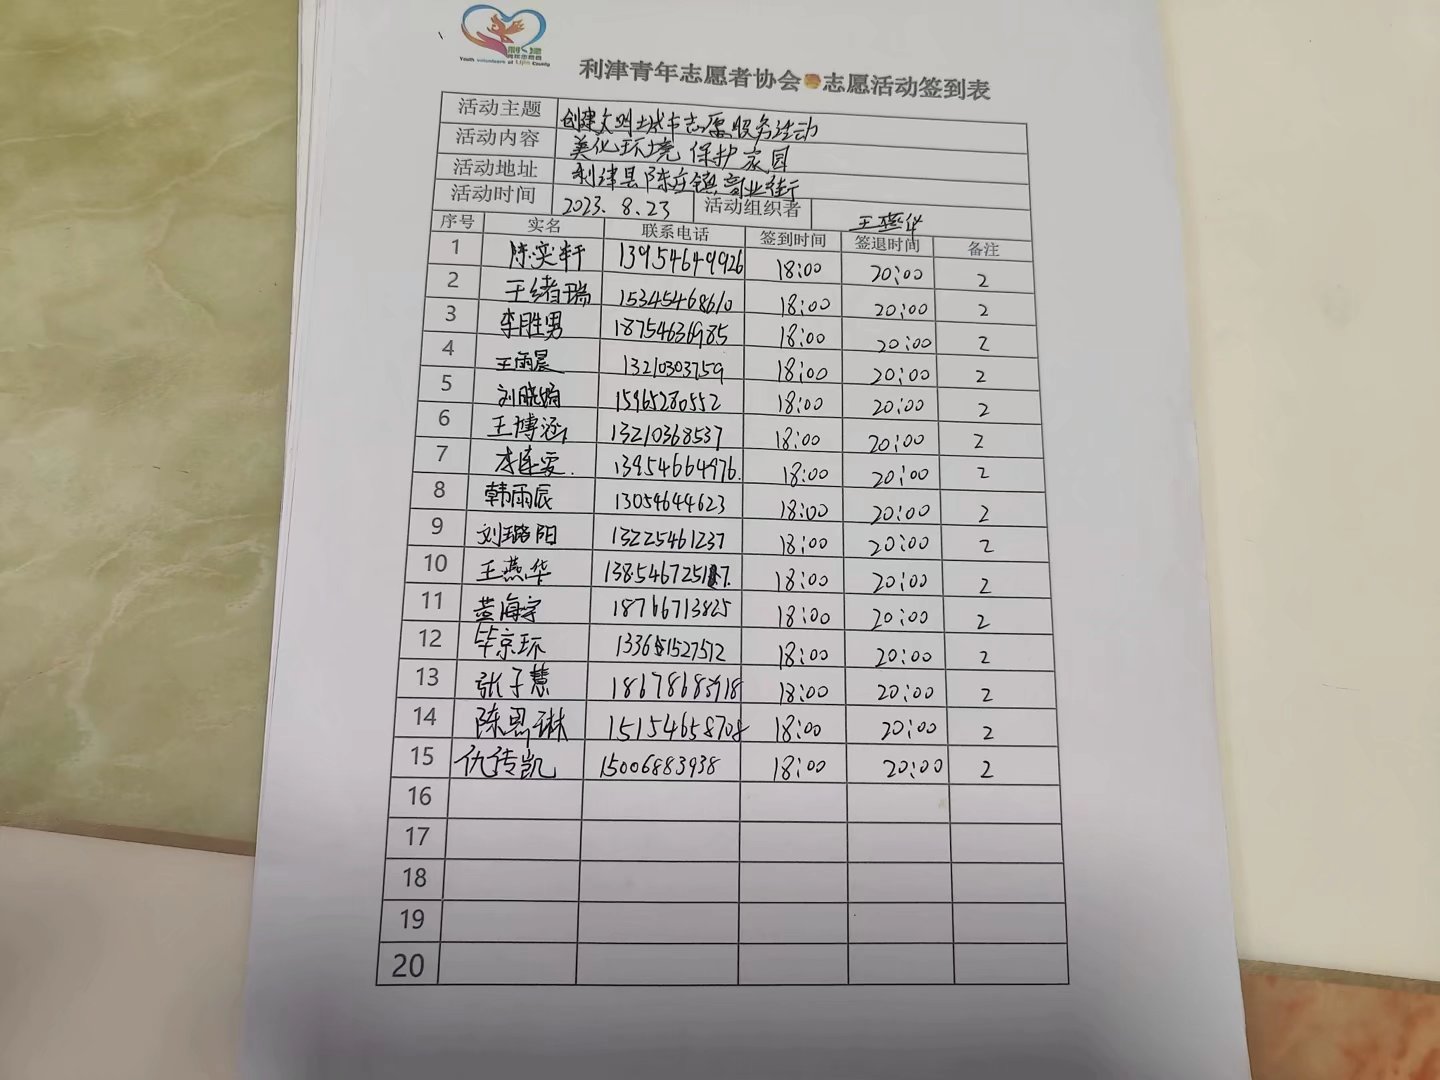 Youth volunteers of Lijin County
利津青年志愿者协会 志愿活动签到表
活动主题 创建文明城市志愿服务活动
活动内容 美化环境 保护家园
活动地址 利津县陈庄镇商业街
活动时间 2023.8.23 活动组织者 王燕华
序号 实名 联系电话 签到时间 签退时间 备注
1 陈奕轩 13954649926 18:00 20:00 2
2 王绪瑞 15345468610 18:00 20:00 2
3 李胜男 18754636985 18:00 20:00 2
4 王雨晨 13210303759 18:00 20:00 2
5 刘晓娟 15965280552 18:00 20:00 2
6 王博涵 13210368537 18:00 20:00 2
7 李连雯. 13954664976. 18:00 20:00 2
8 韩雨辰 13054644623 18:00 20:00 2
9 刘璐阳 13225461237 18:00 20:00 2
10 王燕华 18:00 20:00 2
11 黄海宇 18766713825 18:00 20:00 2
12 毕京环 18:00 20:00 2
13 张子慧 18678683918 18:00 20:00 2
14 陈恩琳 15154658708 18:00 20:00 2
15 仇传凯 15006883938 18:00 20:00 2
16
17
18
19
20